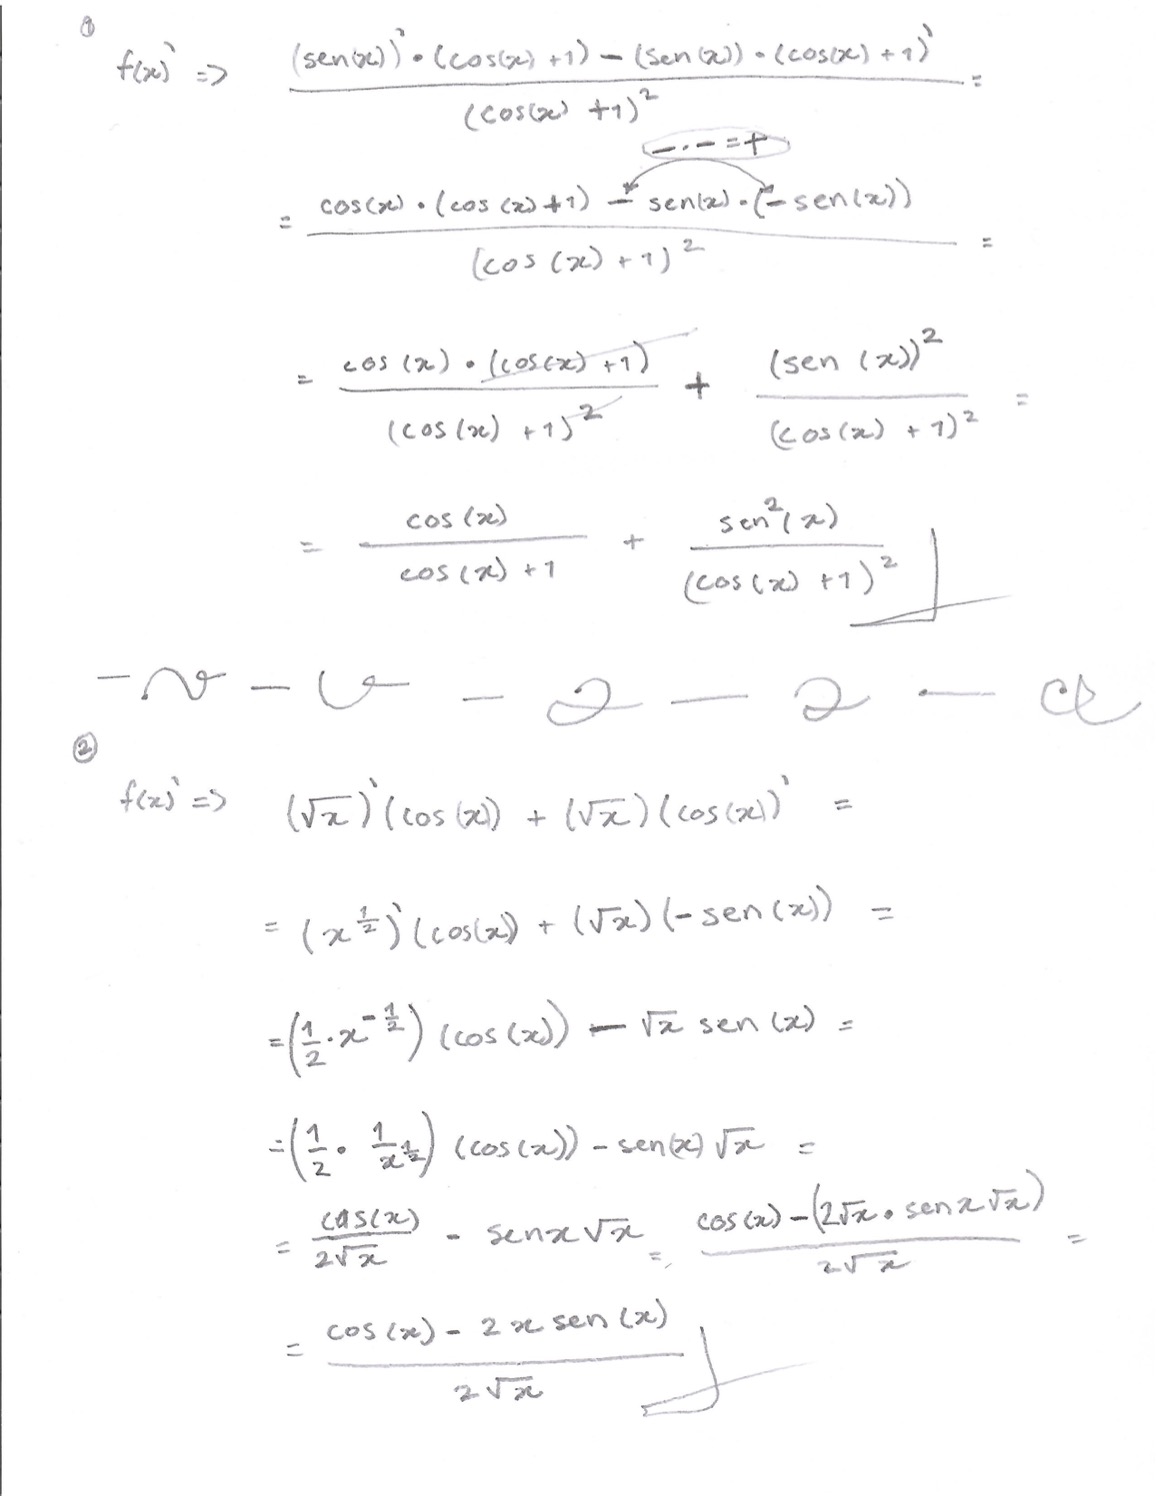 ①
f(x)' => ((sen(x))' • (cos(x) + 1) - (sen(x)) • (cos(x) + 1)') / (cos(x) + 1)² =
- . - = +
= (cos(x) • (cos(x) + 1) - sen(x) • (- sen(x))) / (cos(x) + 1)² =
= (cos(x) • (cos(x) + 1)) / (cos(x) + 1)² + (sen(x))² / (cos(x) + 1)² =
= cos(x) / (cos(x) + 1) + sen²(x) / (cos(x) + 1)²
②
f(x)' => (√x)' (cos(x)) + (√x) (cos(x))' =
= (x^(1/2))' (cos(x)) + (√x) (- sen(x)) =
= (1/2 . x^(-1/2)) (cos(x)) - √x sen(x) =
= (1/2 • 1/x^(1/2)) (cos(x)) - sen(x) √x =
= cos(x) / 2√x - senx √x = (cos(x) - (2√x • senx √x)) / 2√x =
= (cos(x) - 2x sen(x)) / 2√x